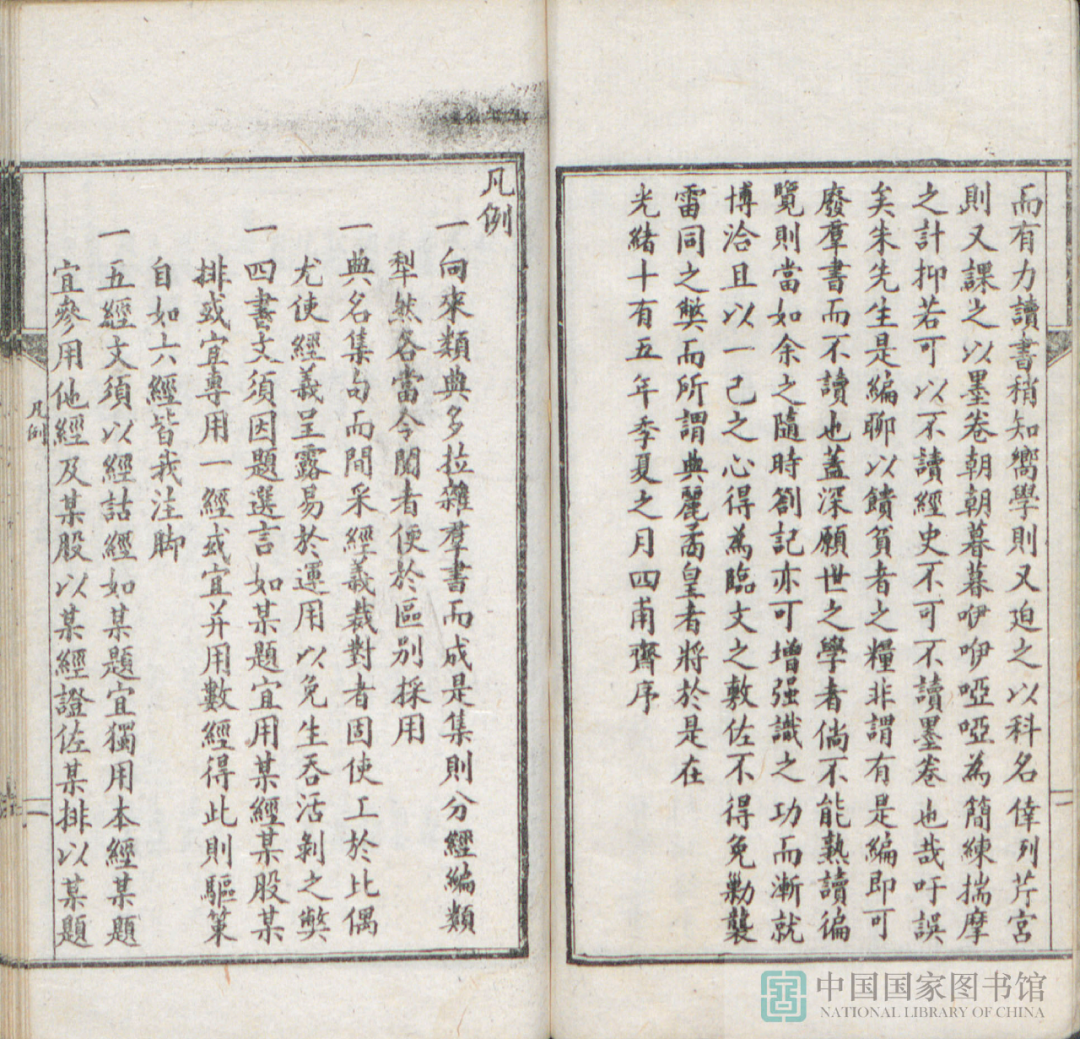 而有力讀書稍知嚮學則又迫之以科名倖列芹宮
則又課之以墨卷朝朝暮暮咿咿啞啞為簡練揣摩
之計抑若可以不讀經史不可不讀墨卷也哉吁誤
矣朱先生是編聊以饋貧者之糧非謂有是編即可
廢羣書而不讀也蓋深願世之學者倘不能熟讀徧
覽則當如余之隨時劄記亦可增强識之功而漸就
博洽且以一己之心得為臨文之敷佐不得免勦襲
雷同之獘而所謂典麗矞皇者將於是在
光緒十有五年季夏之月四甫齊序
凡例
一向來類典多拉雜羣書而成是集則分經編類
犁然各當令閱者便於區别採用
一典名集句而間采經義裁對者固使工於比偶
尤使經義呈露易於運用以免生吞活剝之獘
一四書文須因題選言如某題宜用某經某股某
排或宜專用一經或宜并用數經得此則驅策
自如六經皆我注脚
一五經文須以經詁經如某題宜獨用本經某題
宜參用他經及某股以某經證佐某排以某題
凡例
二
中国国家图书馆
NATIONAL LIBRARY OF CHINA